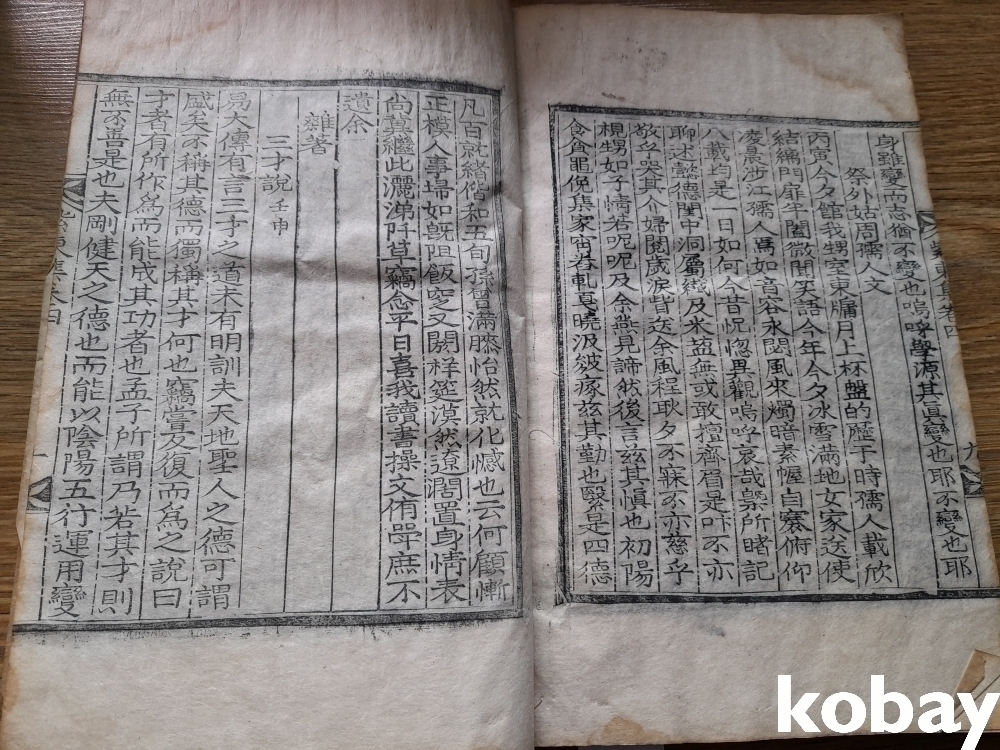 身雖變而志猶不變也嗚呼學源其眞變也耶不變也耶
祭外姑周孺人文
丙寅今夕館我甥室東牖月上杯盤的歷于時孺人載欣
結縭門扉半闔微聞笑語今年今夕冰雪滿地女家送使
凌晨涉江孺人焉如音容永閟風來燭暗素幄自褰俯仰
八載均是一日如何今昔怳惚異觀嗚呼哀哉槩所睹記
聊述懿德閨中洞屬織及米鹽無或敢擅齊眉是吁不亦
敬乎哭其介婦閱歲淚皆送余風程耿夕不寐不亦慈乎
視甥如子情若呢呢及余燕見諦然後言玆其愼也初陽
食食黽俛集家宙若軋真曉汲皴瘃玆其勤也繄是四德
凡百就緖偕和五旬孫曾滿膝怡然就化憾也云何顧慚
正模人事埽如旣阻飯窆又闕祥筵漠然遼濶置身情表
尙冀繼此灑涕阡草竊念平日喜我讀書操文侑學庶不
遺余
雜著
三才說 壬申
易大傳有言三才之道未有明訓夫天地聖人之德可謂
盛矣不稱其德而獨稱其才何也竊嘗反復而爲之說曰
才者有所作爲而能成其功者也孟子所謂乃若其才則
無不善是也夫剛健天之德也而能以陰陽五行運用變
東集卷四
九
kobay